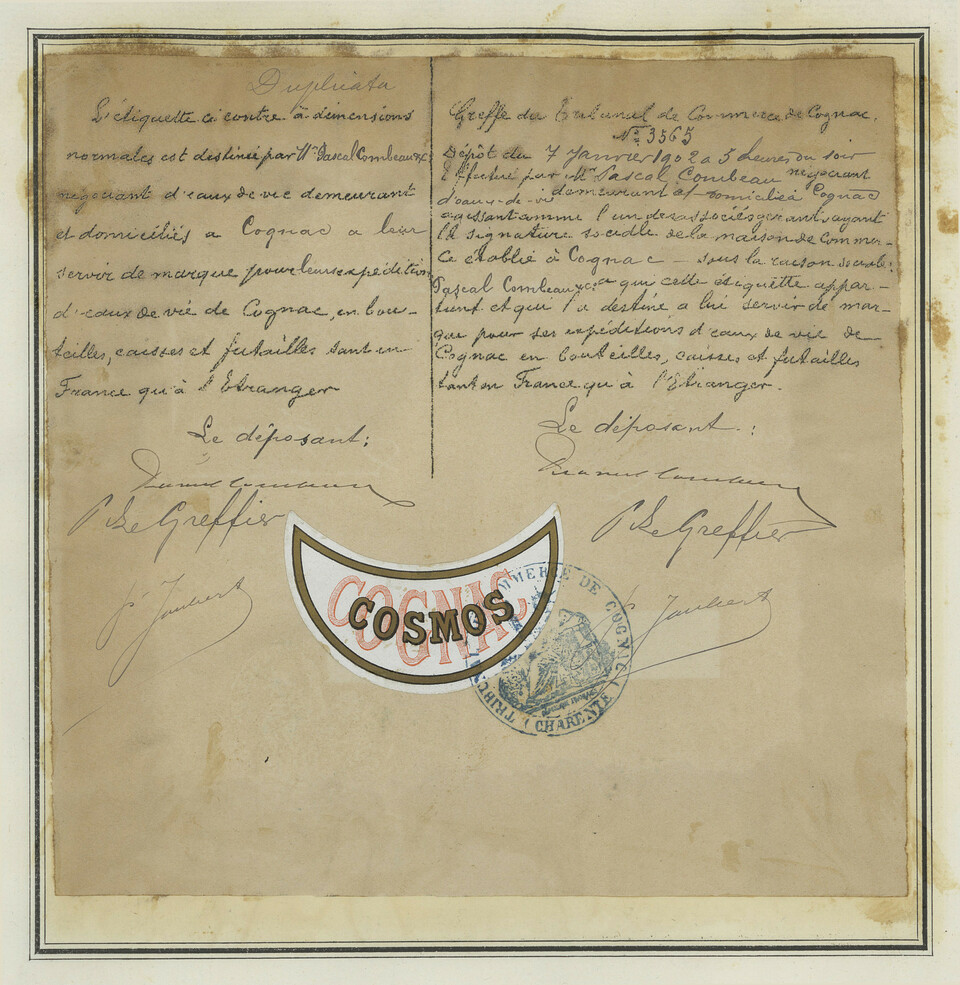 Duplicata
L'étiquette ci contre à dimensions
normales est destinée par Mr Pascal Combeau & Cº
négociant d'eaux de vie demeurant
et domiciliés a Cognac a leur
servir de marque pour leurs expédition
d'eaux de vie de Cognac, en bou-
teilles, caisses et futailles tant en
France qu'à l'Etranger
Le déposant:
P Le Greffier
P Joubert
Greffe du Tribunal de Commerce de Cognac.
Nº 3565
Dépôt du 7 Janvier 1902 a 3 heures du soir
Effectué par Mr Pascal Combeau négociant
d'eaux-de-vie demeurant et domicilié à Cognac
agissant comme l'un des associés gerant, ayant
la signature sociale de la maison de Commer-
ce établie à Cognac - sous la raison sociale:
Pascal Combeau & Cº a qui cette étiquette appar-
tient et qui l'a destiné a lui servir de mar-
que pour ses expéditions d'eaux de vie de
Cognac en bouteilles, caisses et futailles
tant en France qu'à l'Etranger.
Le déposant:
P Le Greffier
P Joubert
COGNAC
COSMOS
TRIBUNAL COMMERCE DE COGNAC (CHARENTE)